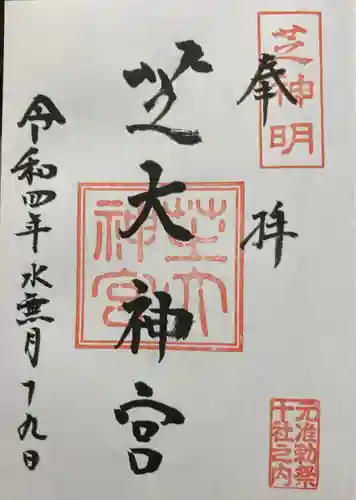 奉拝
芝神明
芝大神宮
芝大
神宮
令和四年水無月十九日
元准勅祭
十社之内